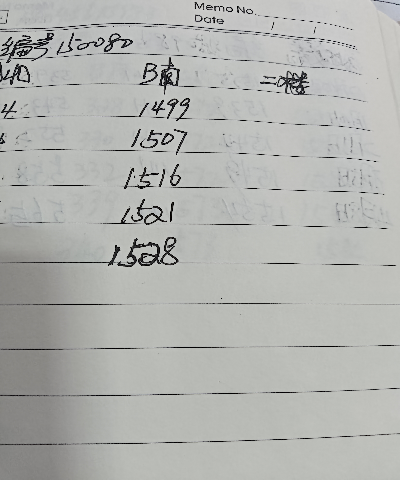 Memo No.
Date / /
编号 150080
B南 二楼
4 1499
1507
1516
1521
1528